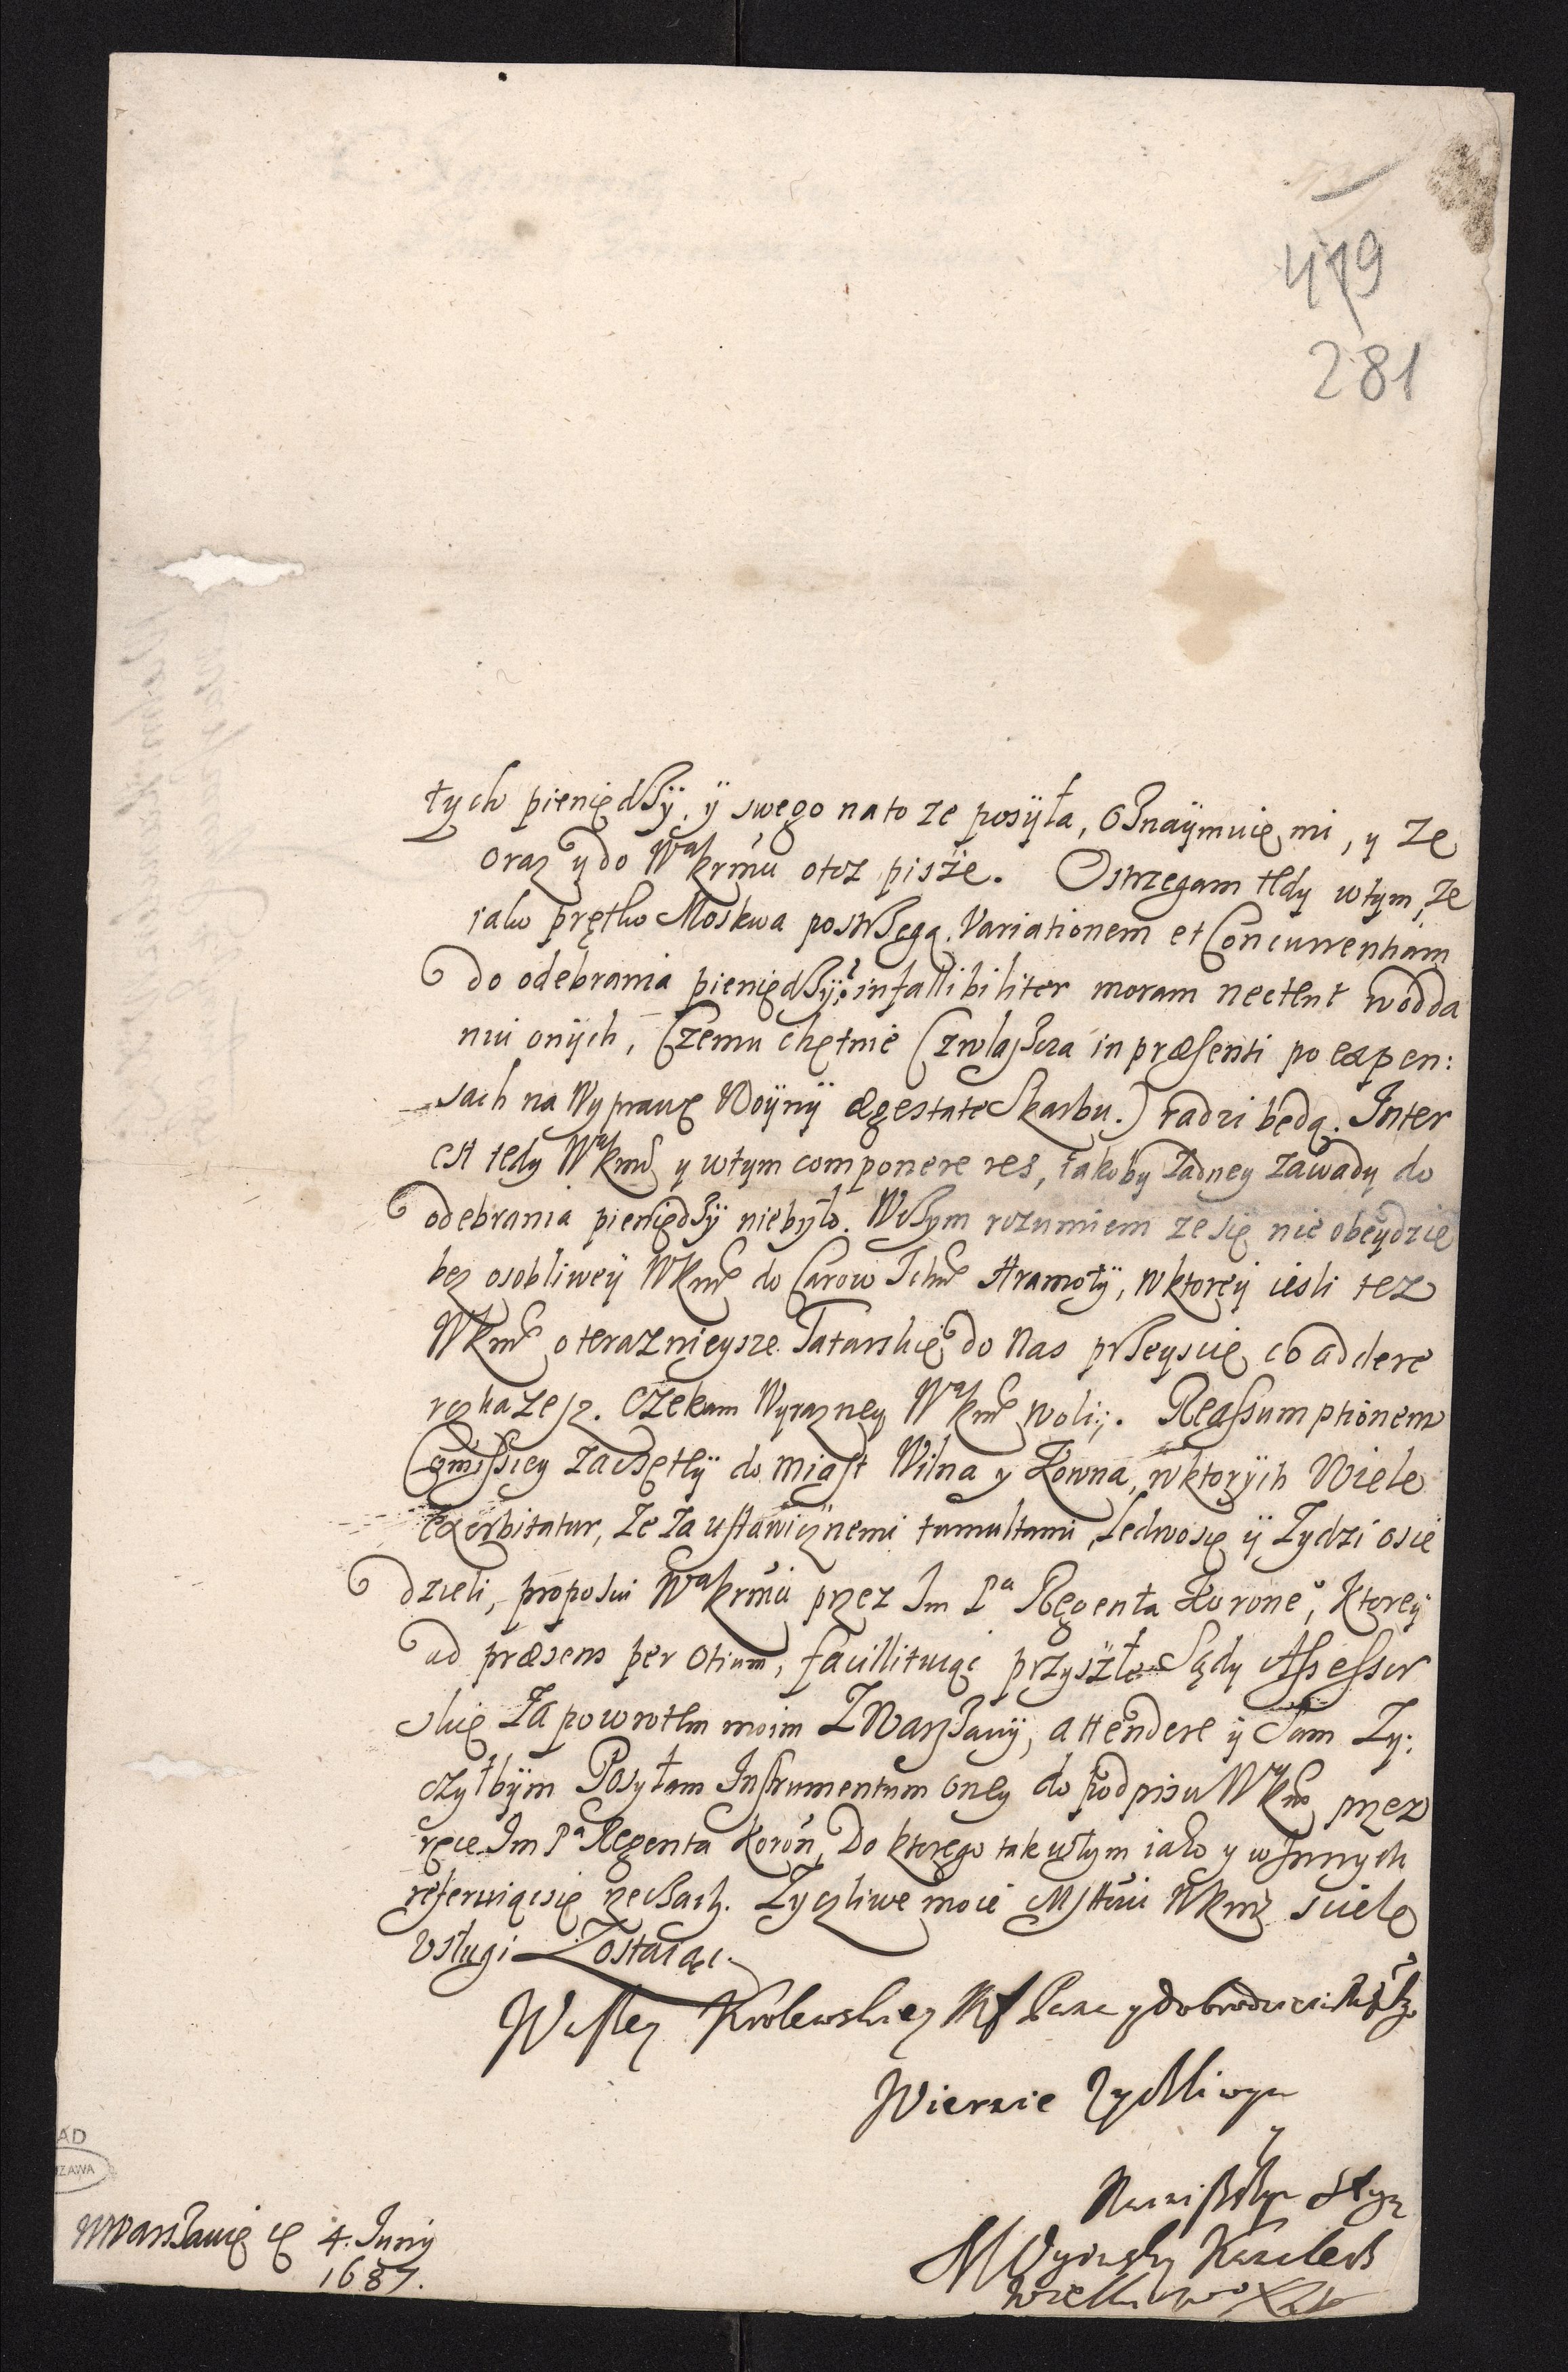 479
281
tych pieniędzÿ, ÿ swego na to ze posÿła, Oznaÿmuie mi, y ze
oraz y do Wa krmu otoz pisze. Ostrzegam tedy wtym, ze
iako prętko Moskwa postrzega Variationem et Concurrentiam
do odebrania pieniędzÿ, infallibiliter moram nectent wodda
niu onÿch, Czemu chętnie (zwłaszcza in præsenti po expen:
sach na Wyprawę Woÿnÿ ægestate Skarbu.) radzi będą. Inter
est tedy Wa kmci y wtym componere res, iakoby żadney zawady do
odebrania pieniędzÿ niebyło. Wczym rozumiem ze się nie obeydzie
bez osobliweÿ WKmci do Carow Ichmci Hramotÿ, w ktoreÿ iesli tez
WKmc o teraznieysze Tatarskie do Nas przeyscie co addere
roskażesz. Czekam Wyrazney Wa kmci woliy. Reassumptionem
Commissiey zaczętÿ do miast Wilna y Kowna, w ktorÿch Wiele
exorbitatur, ze za ustawicznemi tumultami, ledwosię ÿ Zydzi osie
dzieli, proposui Wa krmci przez Im Pa Regenta Korone°, Ktoreÿ
ad præsens per otium, facillituiąc przyszłe Sądy Assessor
skie za powrotem moim z Warszawÿ, attendere ÿ sam Zy:
czyłbÿm Posyłam Instrumentum oney do podpisu W Kmci przez
ręce Im Pa Regenta Koron, Do ktorego tak wtym iako y w Innych
referuiącsię rzeczach. Zyczliwe moie Mstwu WKmci sciele
Usługi Zostaiąc
Waszey Krolewskiey Msci Pana y dobrodzieia Mego
Wiernie Zyczliwym
y
Nanizszym sługą
M Ogynsky Kanclerz
Wielki W X Lit
w Warszawie d 4. Juny
1687.
AD
ZAWA